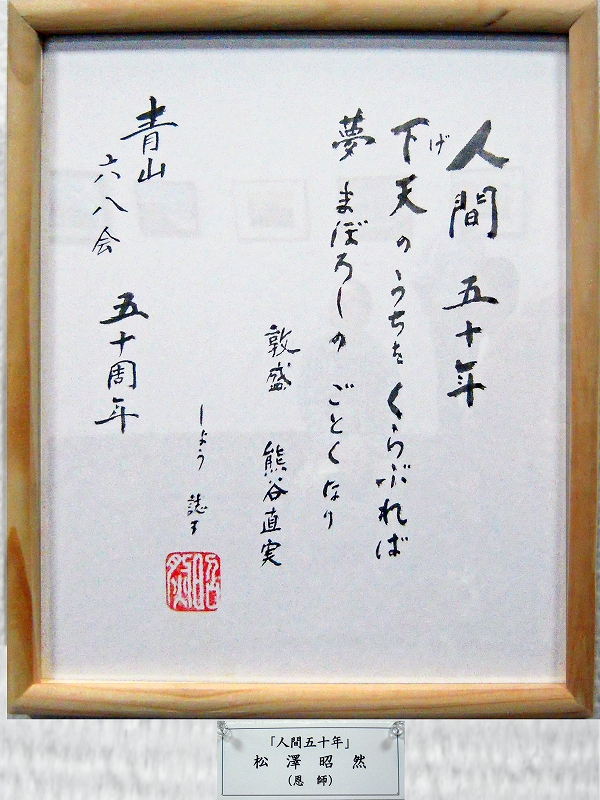 人間 五十年
下天のうちをくらぶれば
げ
夢 まぼろしの ごとくなり
敦盛 熊谷直実
しょう 誌す
昭然
青山 六八会 五十周年
「人間五十年」
松澤昭然
(恩師)